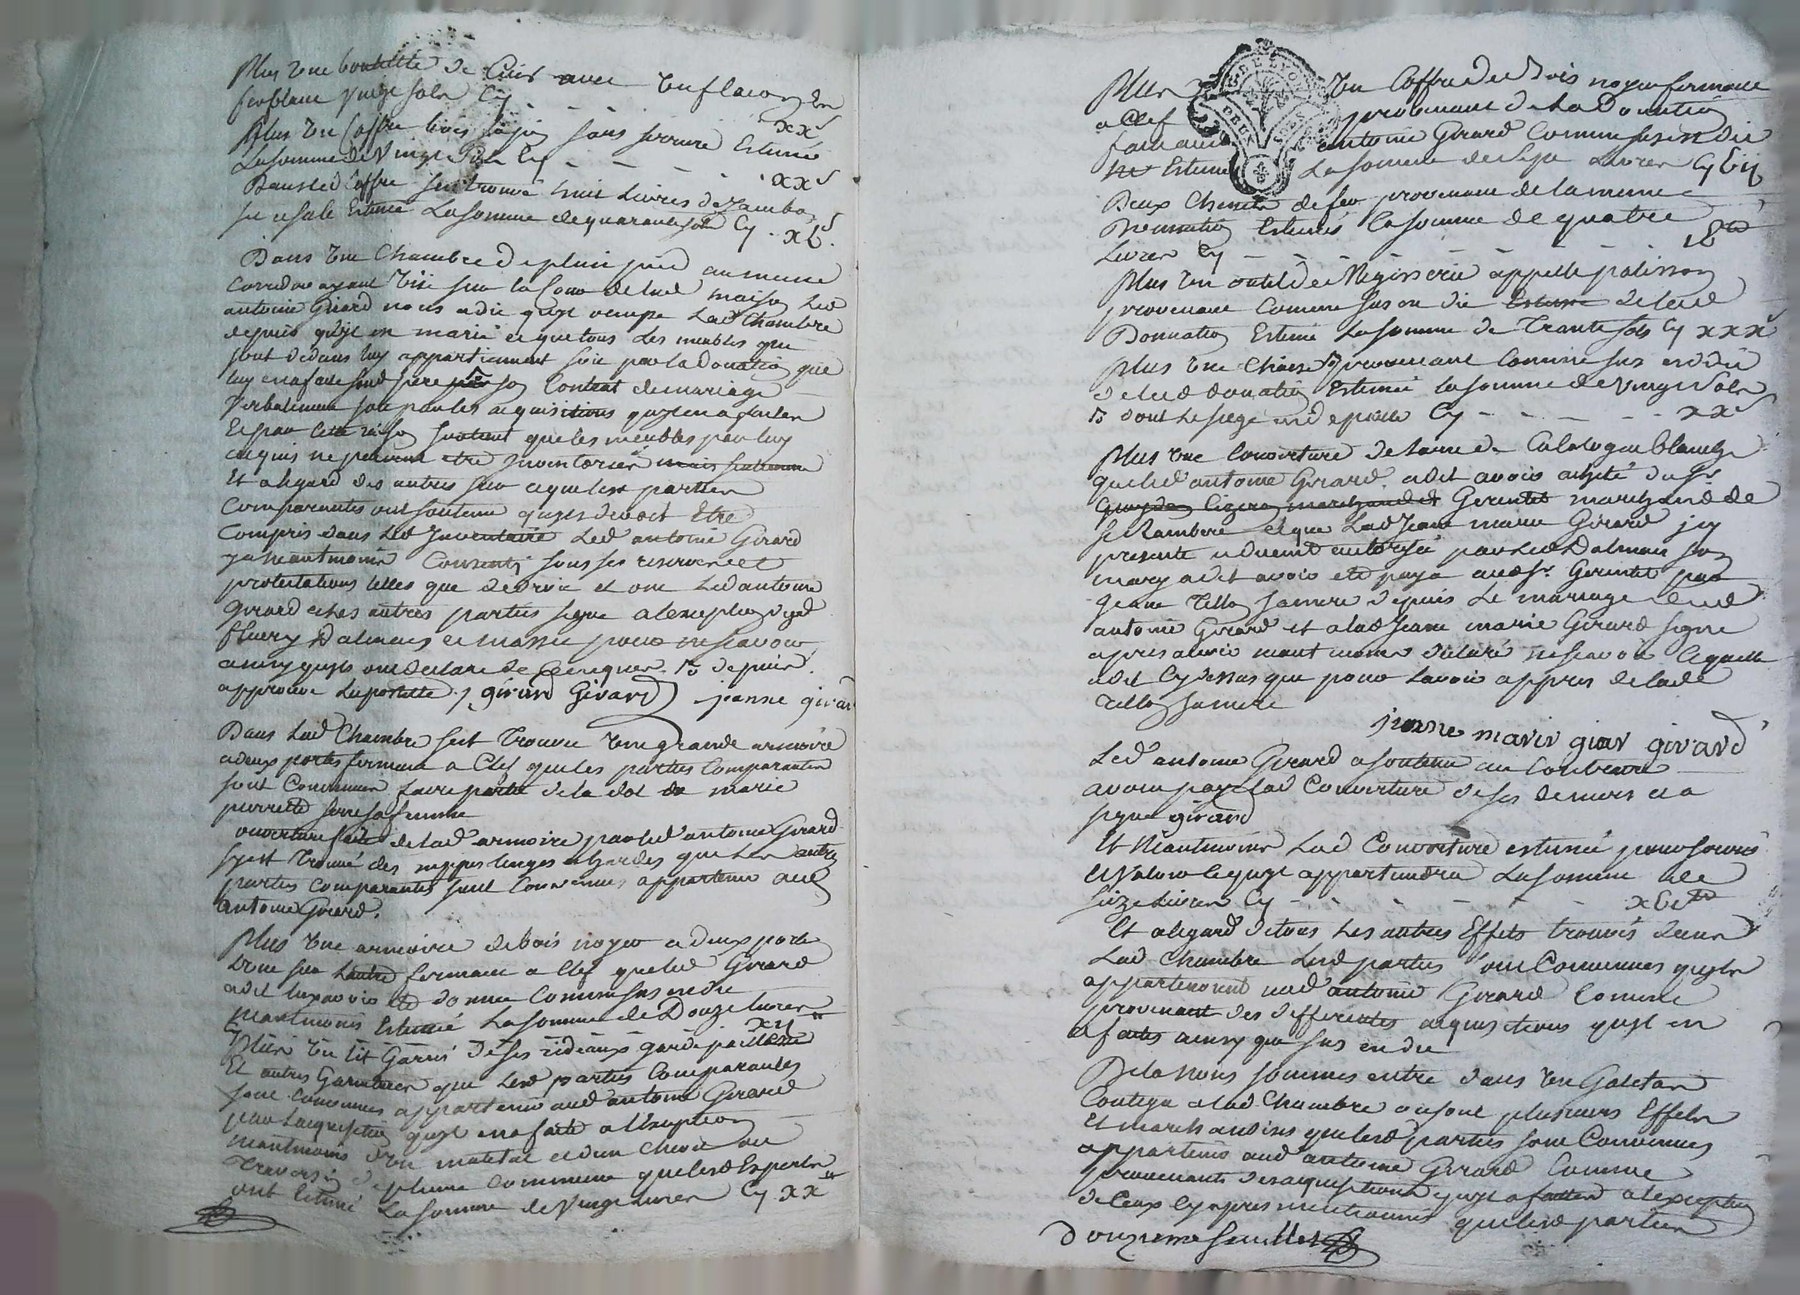 Plus une bouteille de Cuir avec un flacon En
ferblanc vingt sols Cy - - - xx s
Plus un Coffre bois sapin sans serrure Estimé
La somme de vingt sols Cy - - - xx s
Dans led coffre sest trouvé huit Livres de Jambon
sec et salé Estimé La somme de quarante sols Cy - xL s
Dans une Chambre de plein pied au meme
Corridor ayant vüe sur la Cour de lad maison Led
antoine Girard nous a dit quil occupe Lad Chambre
depuis quil est marié et que tous Les meubles qui
sont dedans luy appartiennent soit par la donation que
luy en a fait sond pere par son Contrat de mariage
verbalement soit par les acquisitions quil en a faites
Et par cette raison soutient que les meubles par luy
acquis ne peuvent etre Inventoriés mais seulement
Et a legard des autres sur ce que les parties
Comparentes ont soutenu quils devoit Etre
Compris dans Led Inventaire Led antoine Girard
y a neantmoins Consenti sous ses reserves et
protestations telles que de droit et ont Led antoine
Girard et les autres parties signé a lexception dud
fleury Dalmais et massé pour ne scavoir
ainsy quils ont declaré de Ce requis
approuvé La postille girard Girard janne girar
Dans Lad Chambre sest Trouvé une grande armoire
a deux portes fermant a Clef que les parties Comparantes
sont Convenues faire partie de la dot de marie
pierrette serre sa femme
ouverture faite de lad armoire par led antoine Girard
sy est Trouvé des nippes linges et hardes que Les autres
parties comparantes sont Convenues appartenir aud
antoine Girard.
Plus une armoire de bois noyer a deux portes
Lune sur Lautre fermant a Clef que led Girard
a dit luy avoir eté donnée Comme sus en die
neantmoins Estimé La somme de Douze livres
xii
Plus un lit Garni de ses rideaux garde paillasse
Et autres Garnitures que Lesd parties Comparantes
sont convenues appartenir aud antoine Girard
par Lacquisition quil en a faite a lexception
neantmoins dun matelat et dun chevet ou
Traversin de plume commune que lesd Experts
ont Estimé La somme de vingt Livres Cy xx
Plus un Coffre de Bois noyer fermant
a Clef provenant de La Donation
antoine Girard Comme sus en die
Estimé La somme de sept Livres Cy
Deux Chenets de feu provenant de la meme
Donnation Estimés la somme de quatre
Livres Cy - - - - - - -
Plus un outil de Megisserie appellé palisson
provenant comme sus on die Estimé de lad
Donnation Estimé La somme de Trante sols Cy xxx s
Plus une Chaise provenant Comme sus en die
de lad donation Estimée la somme de vingt sols
dont Le siege est de paille Cy - - - - - xx s
Plus une Couverture de laine de Catalogne blanche
que led antoine Girard a dit avoir acheté du Sr
Gerentet marchand de
St Rambert et que Lad Jeane marie Girard icy
presente et duement autorisée par Led Dalmais son
mary a dit avoir eté payé aud Sr Gerentet par
Jeane Tillon sa mere depuis Le mariage dud
antoine Girard et a lad Jeane marie Girard signé
apres avoir declaré ne scavoir Laquelle
a dit Cy dessus que pour Lavoir appris de lade
Tillon sa mere
janne marie girar girard
Led antoine Girard a soutenu au Contraire
avoir payé lad Couverture de ses deniers et a
signé girard
Et Neantmoins Lad Couverture estimée pour servir
et valoir ce quil appartiendra La somme de
seize Livres Cy - - - - - -
Et a legard de tous Les autres Effets trouvés dans
Lad Chambre Lesd parties sont Convenues quils
appartenoient aud antoine Girard Comme
provenant des differentes acquisitions quil en
a faites ainsy que sus en die
De la nous sommes entré dans un Galetas
Contigu a lad Chambre ou sont plusieurs Effets
Et marchandises que lesd parties sont Convenues
appartenir aud antoine Girard Comme
provenants des acquisitions quil a faites a lexception
de Ceux Cy apres mentionnés que lesd parties
Douzieme feuillet